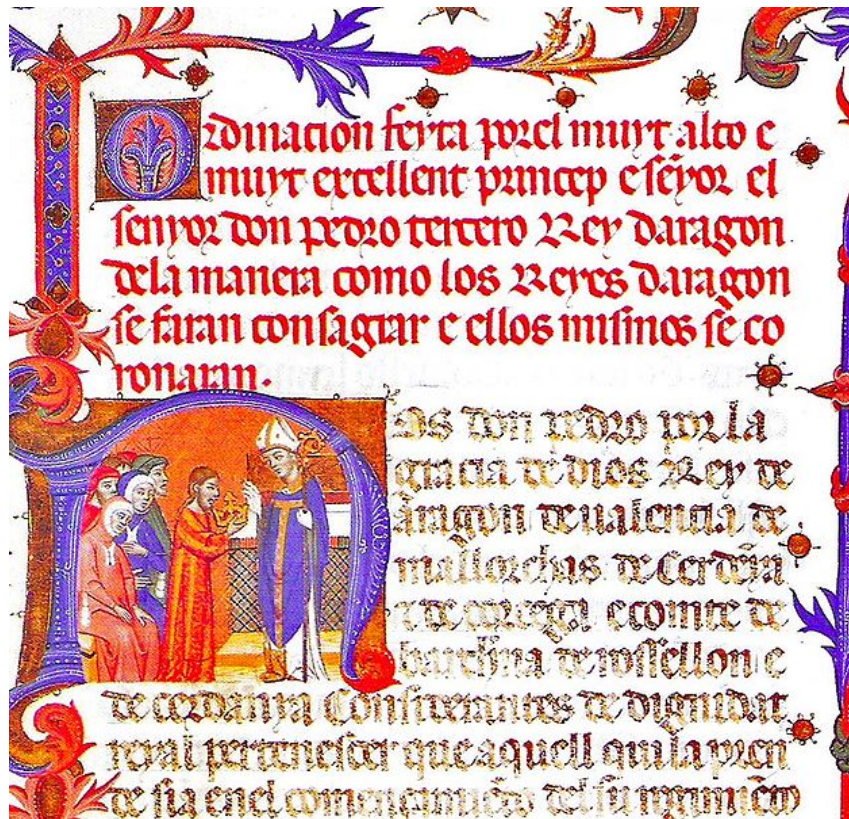 Ordinacion feyta por el muyt alto e
muyt excellent princep e señyor el
senyor don pedro tercero Rey daragon
dela manera como los Reyes daragon
se faran consagrar e ellos mismos se co
ronaran.
Nos don pedro por la
gracia de dios Rey de
aragon de ualencia de
mallorchas de Cerdenya
e de corcega e comte de
barchna de rossellon e
de cerdanya Considerantes de dignidat
reyal pertenescer que aquell qui la pren
de sia en el comencimiento del su regimiento